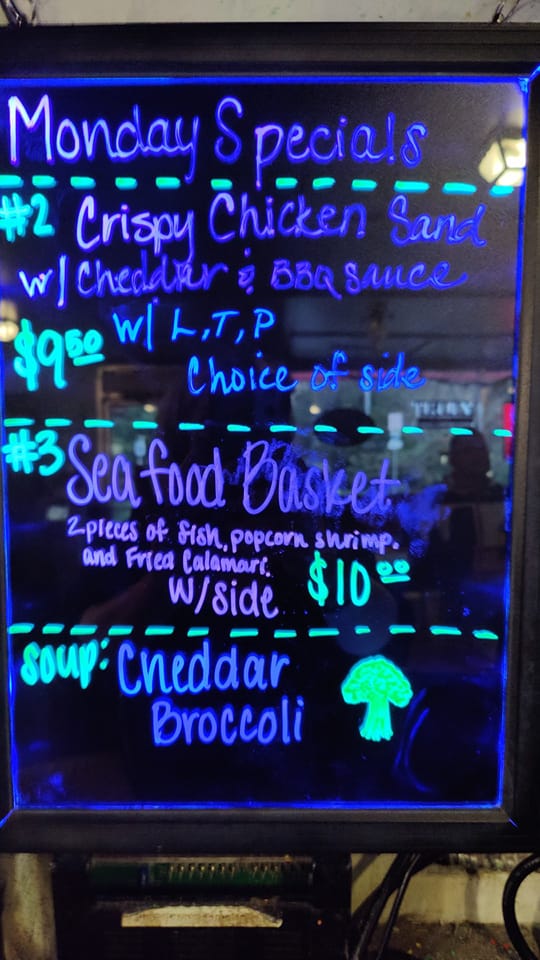 Monday Specials
#2 Crispy Chicken Sand
w/ Cheddar & BBQ sauce
$9.50 w/ L, T, P
Choice of side
#3 Seafood Basket
2 pieces of fish, popcorn shrimp.
and Fried Calamari.
w/side $10.00
Soup: Cheddar
Broccoli